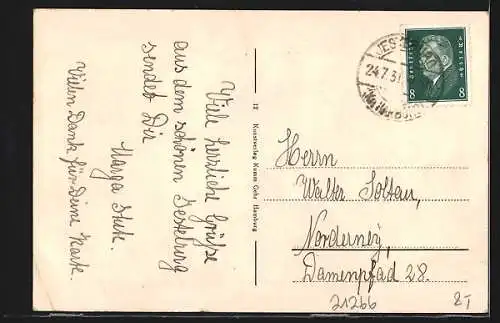 Viele herzliche Grüße
aus dem schönen Jesteburg
sendet Dir
Marga Stuk.
Vielen Dank für Deine Karte.
12 Kunstverlag Kumm Gebr Hamburg
24.7.31
Deutsches Reich
8 8
Herrn
Walter Soltau,
Norderney,
Damenpfad 28.
21266